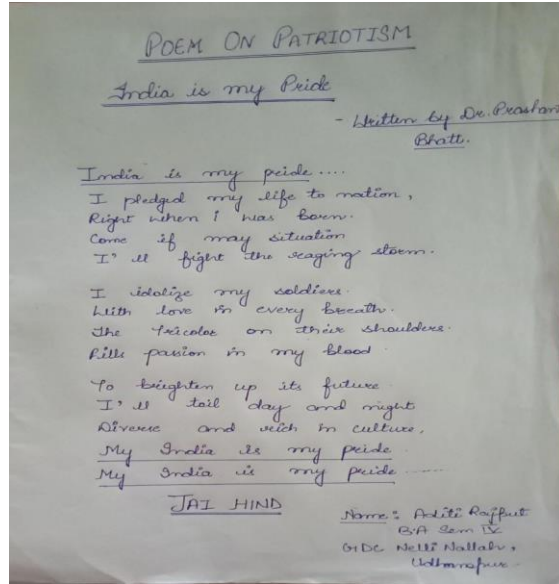 POEM ON PATRIOTISM
India is my Pride
- Written by Dr. Prashant
Bhatt.
India is my pride....
I pledged my life to nation,
Right when i was born.
Come if may situation
I'll fight the raging storm.
I idolize my soldiers.
With love in every breath.
The tricolor on their shoulders.
Fills passion in my blood
To brighten up its future.
I'll toil day and night
Diverse and rich in culture,
My India is my pride.
My India is my pride......
JAI HIND
Name: Aditi Rajput
B.A Sem IV
GDC Nelli Nallah,
Udhampur